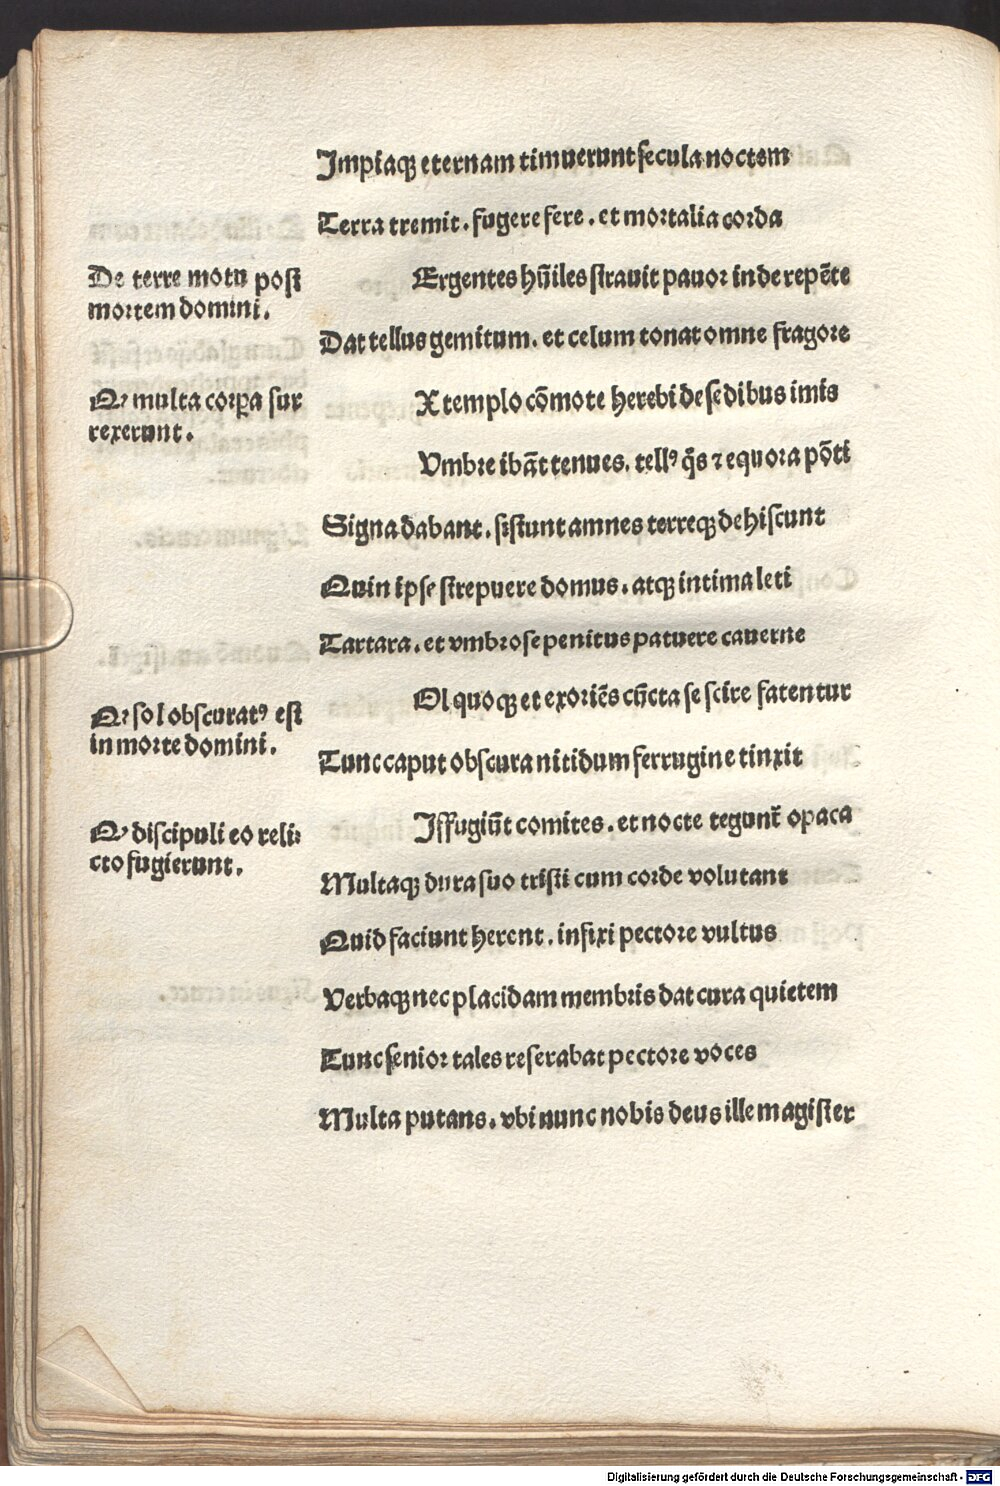 Impiaqꝫ eternam timuerunt secula noctem
Terra tremit. fugere fere. et mortalia corda
De terre motu post
mortem domini.
Ergentes hūiles strauit pauor inde repēte
Dat tellus gemitum. et celum tonat omne fragore
Qꝫ multa corꝑa sur
rexerunt.
X templo cōmote herebi de sedibus imis
Vmbre ibāt tenues. tellꝰ q̄s ⁊ equora pōti
Signa dabant. sistunt amnes terreqꝫ dehiscunt
Quin ipse strepuere domus. atqꝫ intima leti
Tartara. et vmbrose penitus patuere cauerne
Qꝫ sol obscuratꝰ est
in morte domini.
Ol quoqꝫ et exoriēs cūcta se scire fatentur
Tunc caput obscura nitidum ferrugine tinxit
Qꝫ discipuli eo reli:
cto fugierunt.
Iffugiūt comites. et nocte tegunt̄ opaca
Multaqꝫ dura suo tristi cum corde volutant
Quid faciunt herent. infixi pectore vultus
Verbaqꝫ nec placidam membris dat cura quietem
Tunc senior tales reserabat pectore voces
Multa putans. vbi nunc nobis deus ille magister
Digitalisierung gefördert durch die Deutsche Forschungsgemeinschaft - DFG